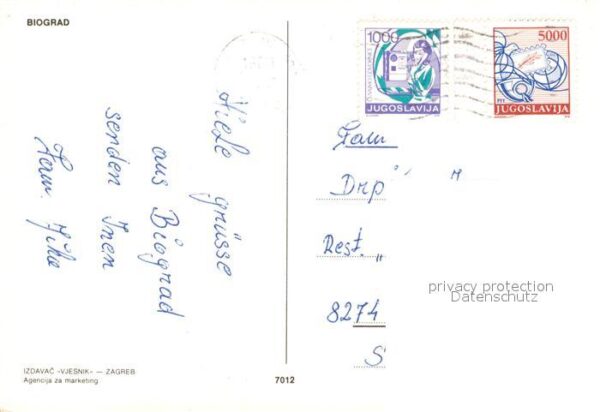 BIOGRAD
Viele grüsse
aus Biograd
senden Inen
Fam.
IZDAVAČ »VJESNIK« — ZAGREB
Agencija za marketing
7012
1000
JUGOSLAVIJA
5000
PTT
JUGOSLAVIJA
Fam
Drp
Rest. „
8274
S
privacy protection
Datenschutz